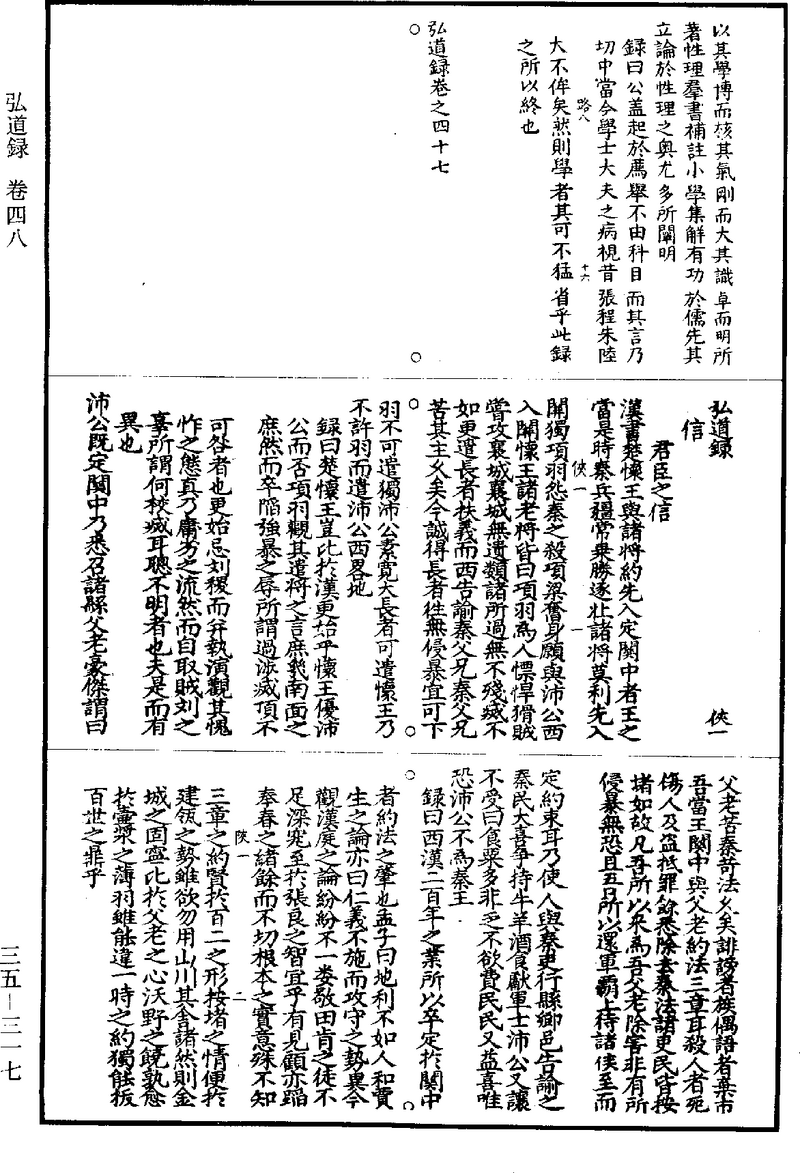 弘道録 卷四八
三五—三一七
以其學博而核其氣剛而大其識卓而明所
著性理羣書補註小學集解有功於儒先其
立論於性理之奥尤多所闡明
録曰公盖起於薦舉不由科目而其言乃
切中當今學士大夫之病視昔張程朱陸
路八
十六
大不侔矣然則學者其可不猛省乎此録
之所以終也
弘道録卷之四十七
弘道録
俠一
信
君臣之信
漢書楚懷王與諸將約先入定關中者王之
當是時秦兵彊常乗勝逐北諸将莫利先入
俠一
一
關獨項羽怨秦之殺項梁奮身願與沛公西
入關懷王諸老將皆曰項羽為人慓悍猾賊
嘗攻襄城襄城無遺類諸所過無不殘滅不
如更遣長者扶義而西告諭秦父兄秦父兄
苦其主乆矣今誠得長者徃無侵暴宜可下
羽不可遣獨沛公素寛大長者可遣懷王乃
不許羽而遣沛公西畧地
録曰楚懷王豈比扵漢更始乎懷王優沛
公而否項羽觀其遣將之言庶幾南面之
庶然而卒陷強暴之辱所謂過涉滅頂不
可咎者也更始忌刘稷而并執演觀其愧
怍之態真乃庸劣之流然而自取賊刘之
辜所謂何校滅耳聰不明者也夫是而有
異也
沛公既定關中乃悉召諸縣父老豪傑謂曰
父老苦秦苛法乆矣誹謗者族偶語者棄市
吾當王關中與父老約法三章耳殺人者死
傷人及盗抵罪餘悉除去秦法諸吏民皆按
堵如故凡吾所以来為吾父老除害非有所
侵暴無恐且吾所以還軍霸上待諸侯至而
定約束耳乃使人與秦吏行縣鄉邑告諭之
秦民大喜爭持牛羊酒食獻軍士沛公又讓
不受曰食粟多非乏不欲費民民又益喜唯
恐沛公不為秦王
録曰西漢二百年之業所以卒定扵關中
者約法之肇也孟子曰地利不如人和賈
生之論亦曰仁義不施而攻守之勢異今
觀漢庭之論紛紛不一婁敬田肯之徒不
足深𡨚至扵張良之智宜乎有見顧亦蹈
奉春之緒餘而不切根本之實意殊不知
陝一
二
三章之約賢扵百二之形按堵之情便扵
建瓴之勢雖欲勿用山川其舍諸然則金
城之固寧比扵父老之心沃野之饒孰愈
扵壷漿之薄羽雖能違一時之約獨能扳
百世之鼎乎